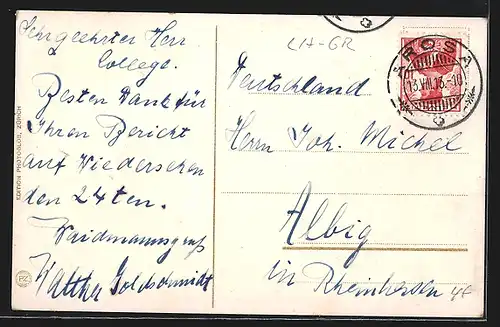 Sehr geehrter Herr
College.
Besten Dank für
Ihren Bericht
auf Wiedersehen
den 24ten.
Waidmannsgruss
Walther Goldschmidt
CH-GR
AROSA
13.VIII.13.-10
Deutschland
Herrn Joh. Michel
Albig
in Rheinhessen
EDITION PHOTOGLOB, ZÜRICH
PZ